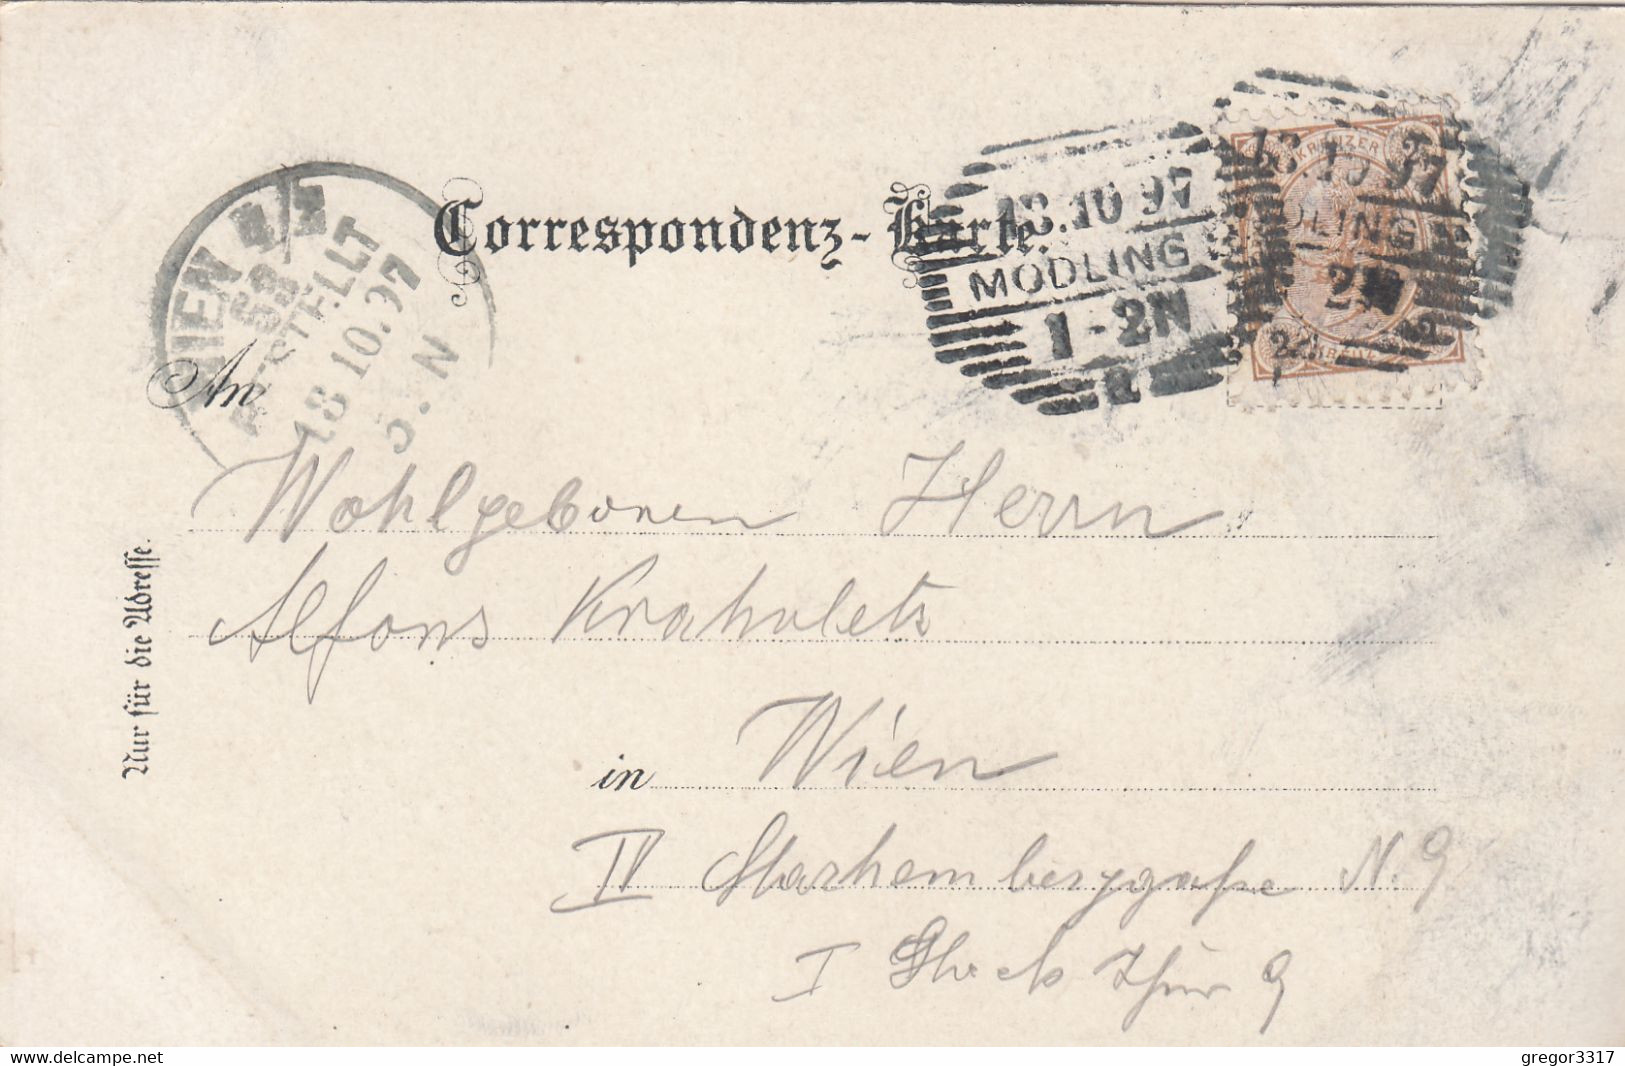 Correspondenz-Karte.
18.10 97
MÖDLING
1-2N
KREUZER
18.10 97
DLING
2N
WIEN 4/1
BESTELLT
18 10.97
N
An
Wohlgeboren Herrn
Alfons Krahuletz
in Wien
IV Starhemberggaße N. 9
I Stock Thür 9
Nur für die Adresse.
delcampe.net
gregor3317